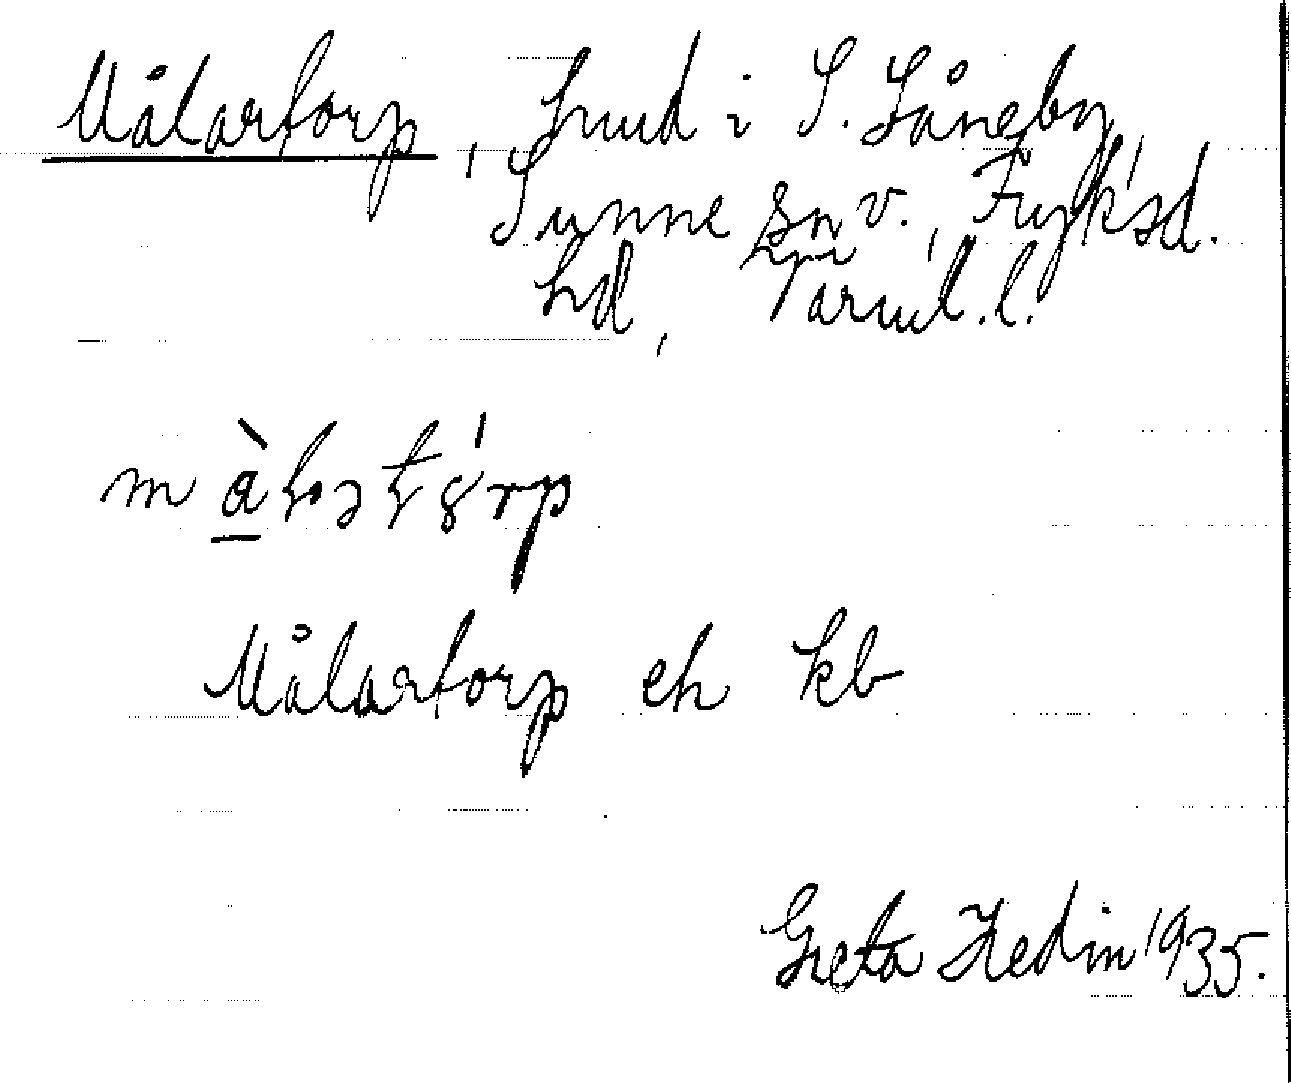 Målartorp, hmd i S. Såneby,
Sunne sn v., Fryksd.
hd, Värml. l.
Målartorp eh kb
Greta Hedin 1935.